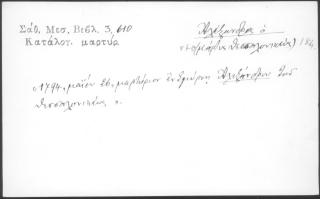 Σάθ. Μεσ. Βιβλ. 3, 610
Κατάλογ. μαρτύρ
Ἀλέξανδρος ὁ
Θεσσαλονικεύς
1794, μαΐου 26, μαρτύριον ἐν Σμύρνῃ Ἀλεξάνδρου τοῦ
Θεσσαλονικέως